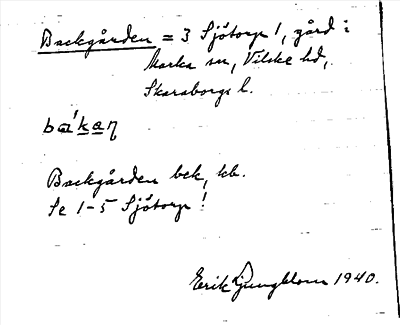 Backgården = 3 Sjötorp 1, gård i
Marka sn, Vilske hd,
Skaraborgs l.
ba'kaɳ
Backgården bek, kb.
Se 1-5 Sjötorp!
Erik Ljungblom 1940.